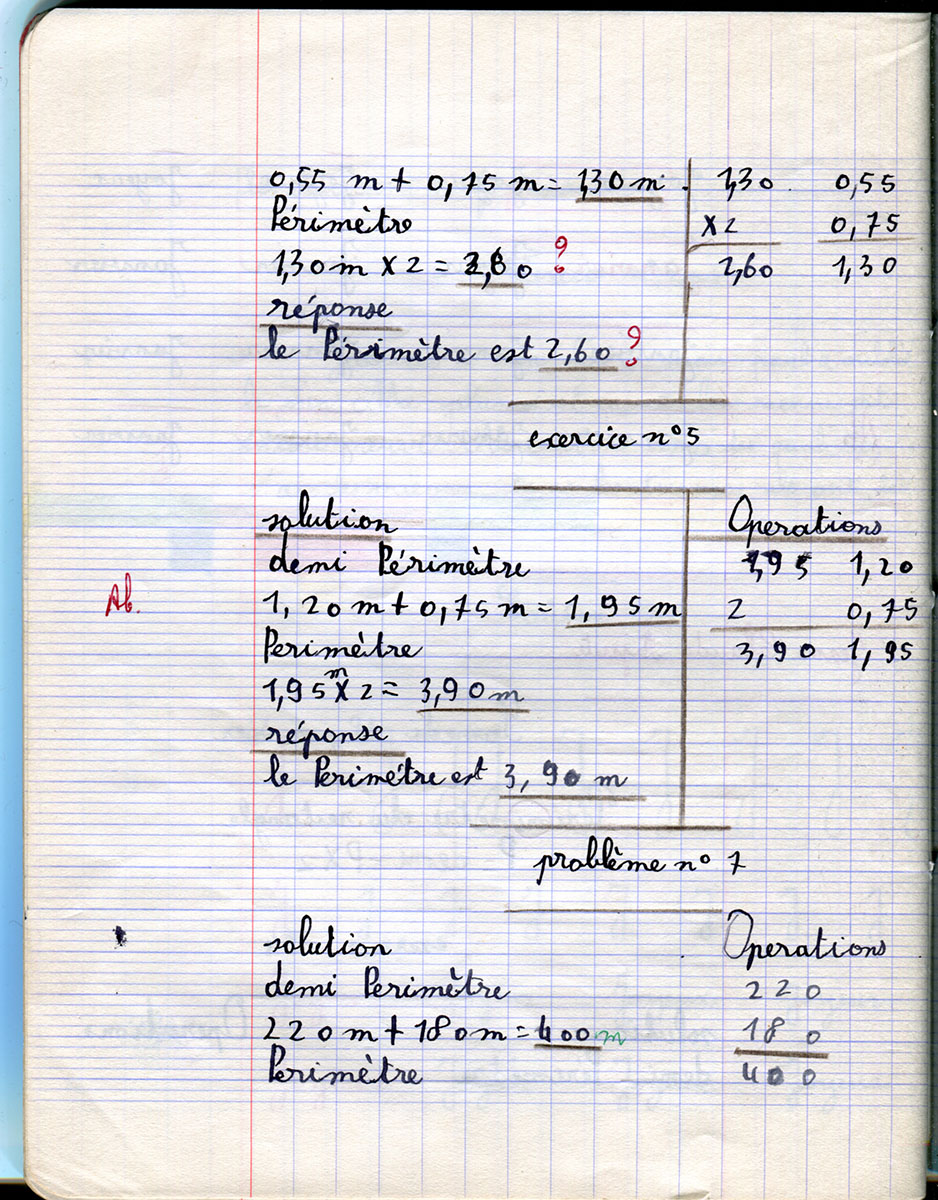 0,55 m + 0,75 m = 1,30 m. 1,30. 0,55
Périmètre x 2 0,75
1,30 m x 2 = 2,60 ? 2,60 1,30
réponse
le Périmètre est 2,60 ?
exercice n° 5
solution Operations
demi Périmètre 1,95 1,20
Ab. 1,20 m + 0,75 m = 1,95 m 2 0,75
Perimètre 3,90 1,95
1,95 m x 2 = 3,90 m
réponse
le Perimètre est 3,90 m
problème n° 7
solution Operations
demi Perimètre 220
220 m + 180 m = 400 m 180
Perimètre 400